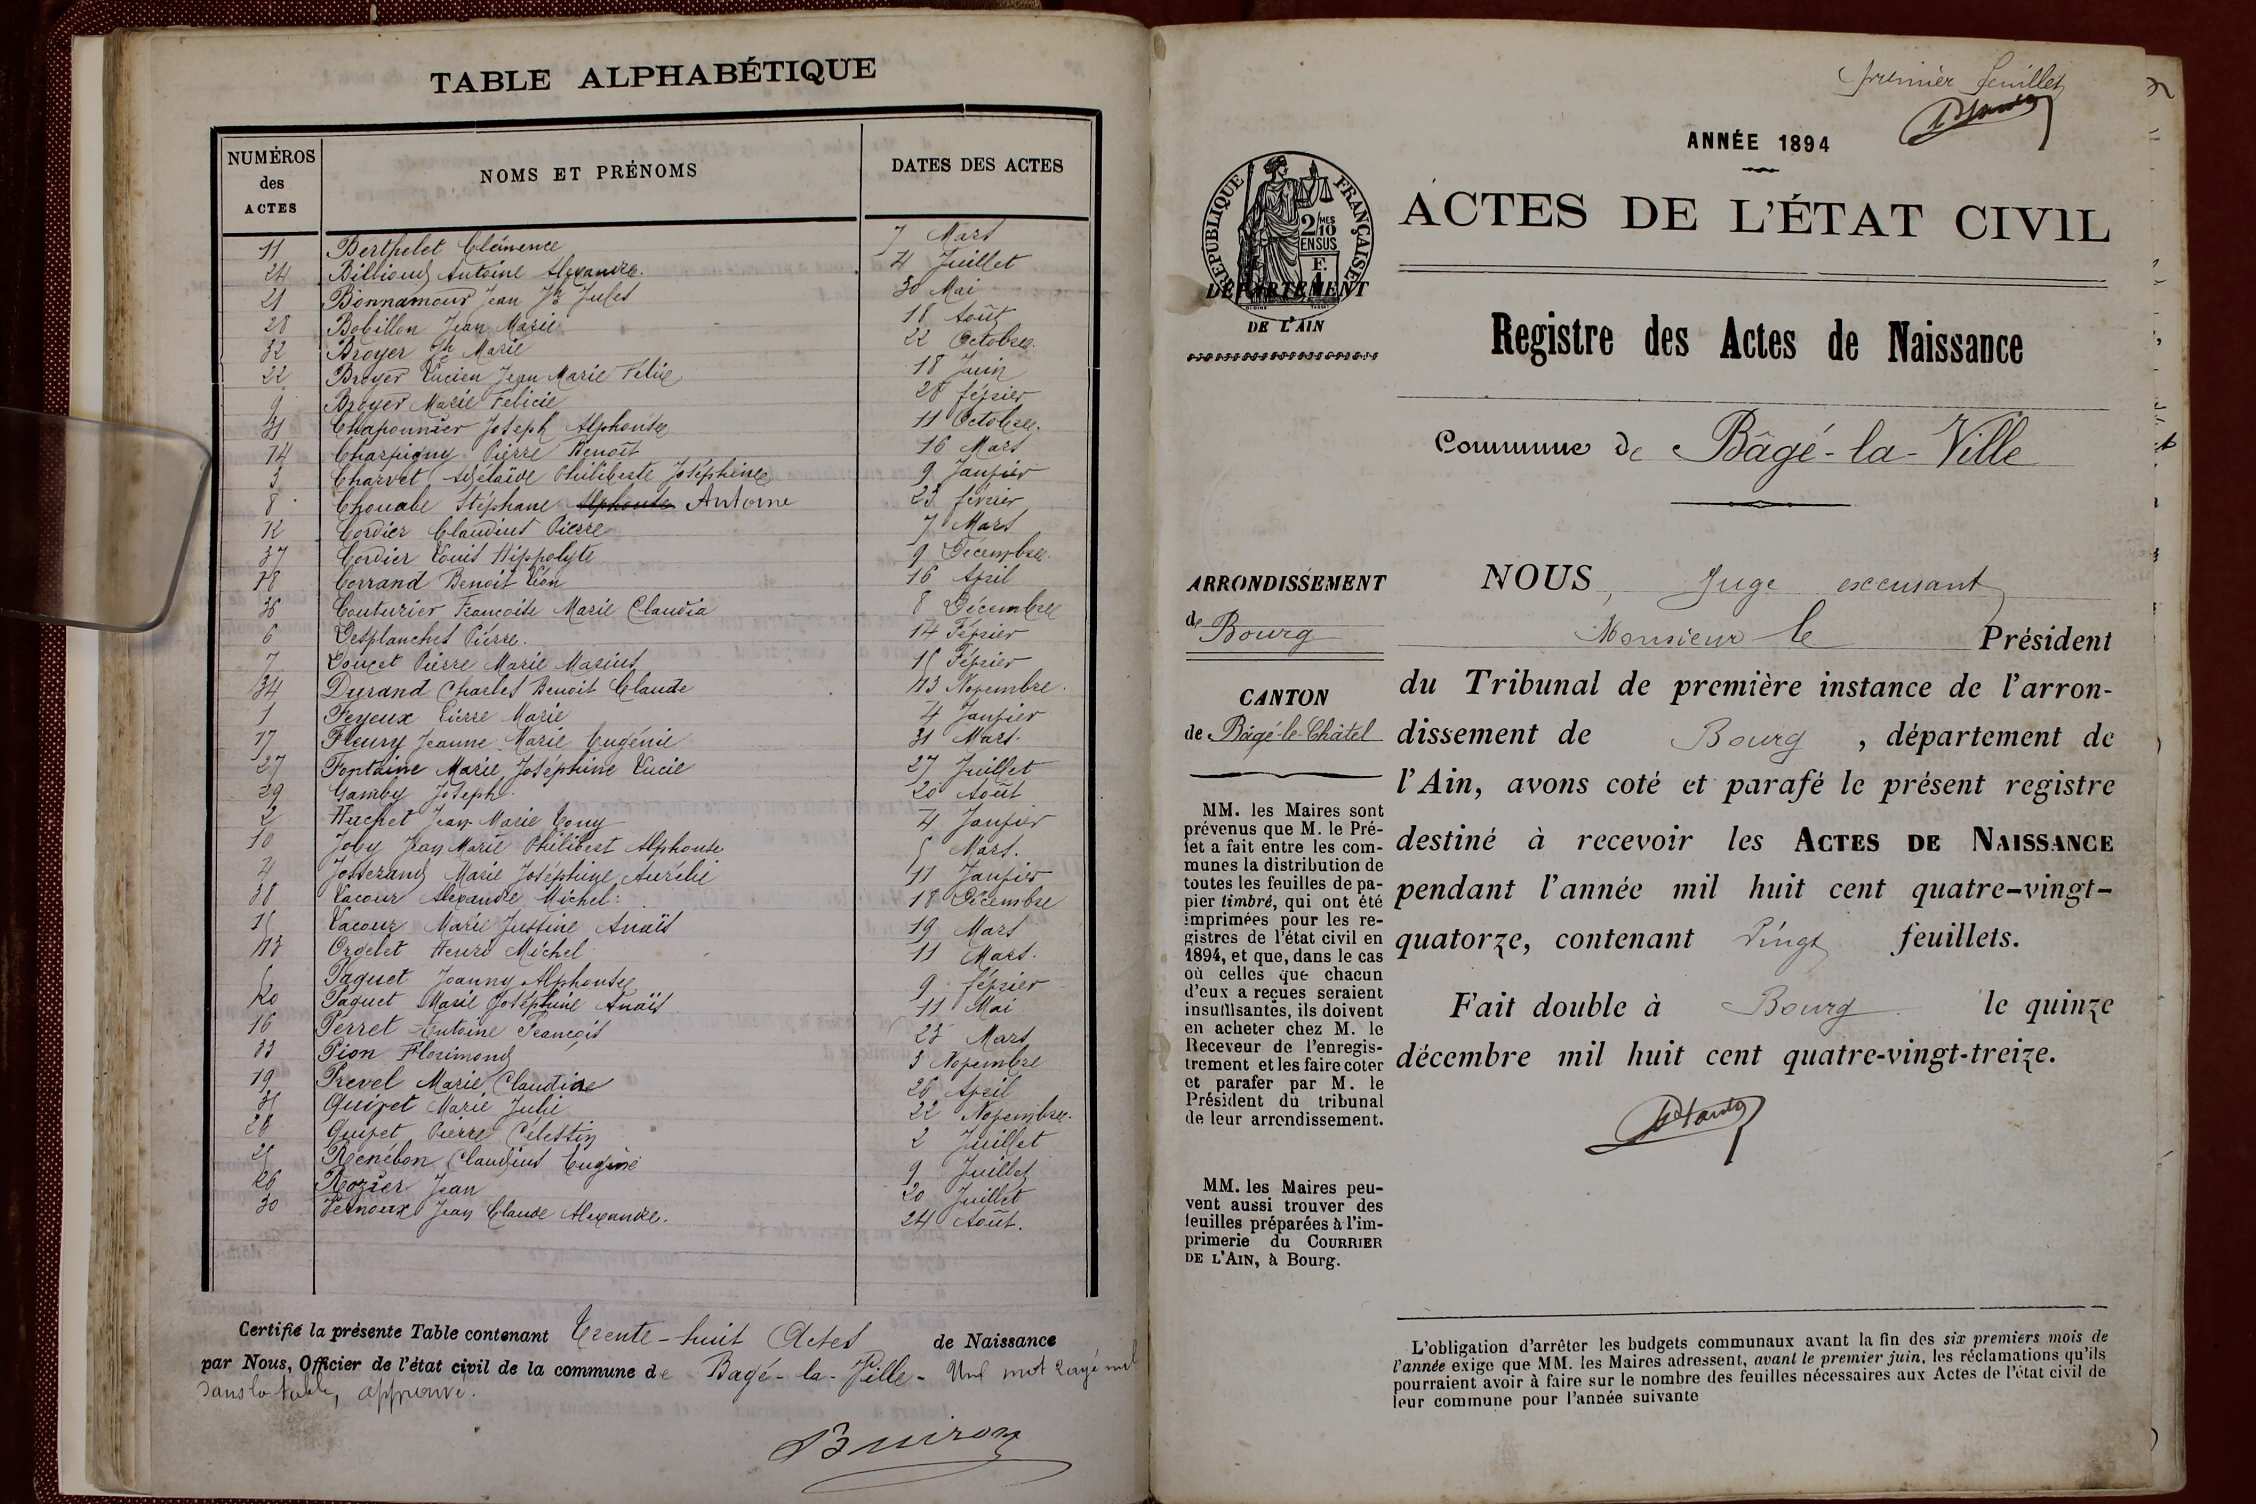 TABLE ALPHABÉTIQUE
NUMÉROS des ACTES NOMS ET PRÉNOMS DATES DES ACTES
11 Berthelet Clémence 7 Mars
24 Billioud Antoine Alexandre. 4 Juillet
21 Bonnamour Jean Jh Jules 30 Mai
28 Bobillon Jean Marie 18 Août
32 Broyer Jh Marie 22 Octobre.
22 Broyer Lucien Jean Marie Félix 18 Juin
9 Broyer Marie Félicie 28 février
31 Chaponnier Joseph Alphonse 11 Octobre.
14 Charpigny Pierre Benoît 16 Mars
3 Charvet Adélaïde Philiberte Joséphine 9 Janvier
8 Chouable Stéphane Alphonse Antoine 23 février
12 Cordier Claudius Pierre 7 Mars
37 Cordier Louis Hippolyte 9 Décembre.
18 Corrand Benoit Léon 16 Avril
36 Couturier Françoise Marie Claudia 8 Décembre
6 Desplanches Pierre. 14 Février
7 Doucet Pierre Marie Marius 15 Février
34 Durand Charles Benoit Claude 13 Novembre.
1 Feyeux Pierre Marie 4 Janvier
17 Fleury Jeanne Marie Eugénie 31 Mars.
27 Fontaine Marie Joséphine Lucie 27 Juillet
29 Gamby Joseph 20 Août
2 Huchet Jean-Marie Tony 4 Janvier
10 Joly Jean Marie Philibert Alphonse 5 Mars.
4 Josserand Marie Joséphine Aurélie 11 Janvier
38 Lacour Alexandre Michel. 18 Décembre
15 Lacour Marie Justine Anaïs 19 Mars
13 Orgelet Henri Michel 11 Mars.
5 Paquet Joanny Alphonse 9 février
20 Paquet Marie Joséphine Anaïs 11 Mai
16 Perret Antoine François 25 Mars
33 Pion Florimond 3 Novembre
19 Prevel Marie Claudine 26 Avril
35 Quivet Marie Julie 22 Novembre.
23 Quivet Pierre Célestin 2 Juillet
25 Renébon Claudius Eugène 9 Juillet
26 Rozier Jean 20 Juillet
30 Vernoux Jean Claude Alexandre. 24 Août.
Certifié la présente Table contenant Trente-huit Actes de Naissance
par Nous, Officier de l'état civil de la commune de Bagé-la-Ville - Un mot rayé nul
dans la table, approuvé.
Buiron
premier feuillet
ANNÉE 1894
RÉPUBLIQUE FRANÇAISE
2/10 MES
EN SUS
F. 1
DÉPARTEMENT
DE L'AIN
ACTES DE L'ÉTAT CIVIL
Registre des Actes de Naissance
Commune de Bâgé-la-Ville
ARRONDISSEMENT
de Bourg
CANTON
de Bâgé-le-Châtel
MM. les Maires sont
prévenus que M. le Pré-
fet a fait entre les com-
munes la distribution de
toutes les feuilles de pa-
pier timbré, qui ont été
imprimées pour les re-
gistres de l'état civil en
1894, et que, dans le cas
où celles que chacun
d'eux a reçues seraient
insuffisantes, ils doivent
en acheter chez M. le
Receveur de l'enregis-
trement et les faire coter
et parafer par M. le
Président du tribunal
de leur arrondissement.
MM. les Maires peu-
vent aussi trouver des
feuilles préparées à l'im-
primerie du COURRIER
DE L'AIN, à Bourg.
NOUS, Juge excusant
Monsieur le Président
du Tribunal de première instance de l'arron-
dissement de Bourg, département de
l'Ain, avons coté et parafé le présent registre
destiné à recevoir les ACTES DE NAISSANCE
pendant l'année mil huit cent quatre-vingt-
quatorze, contenant Vingt feuillets.
Fait double à Bourg le quinze
décembre mil huit cent quatre-vingt-treize.
L'obligation d'arrêter les budgets communaux avant la fin des six premiers mois de
l'année exige que MM. les Maires adressent, avant le premier juin, les réclamations qu'ils
pourraient avoir à faire sur le nombre des feuilles nécessaires aux Actes de l'état civil de
leur commune pour l'année suivante